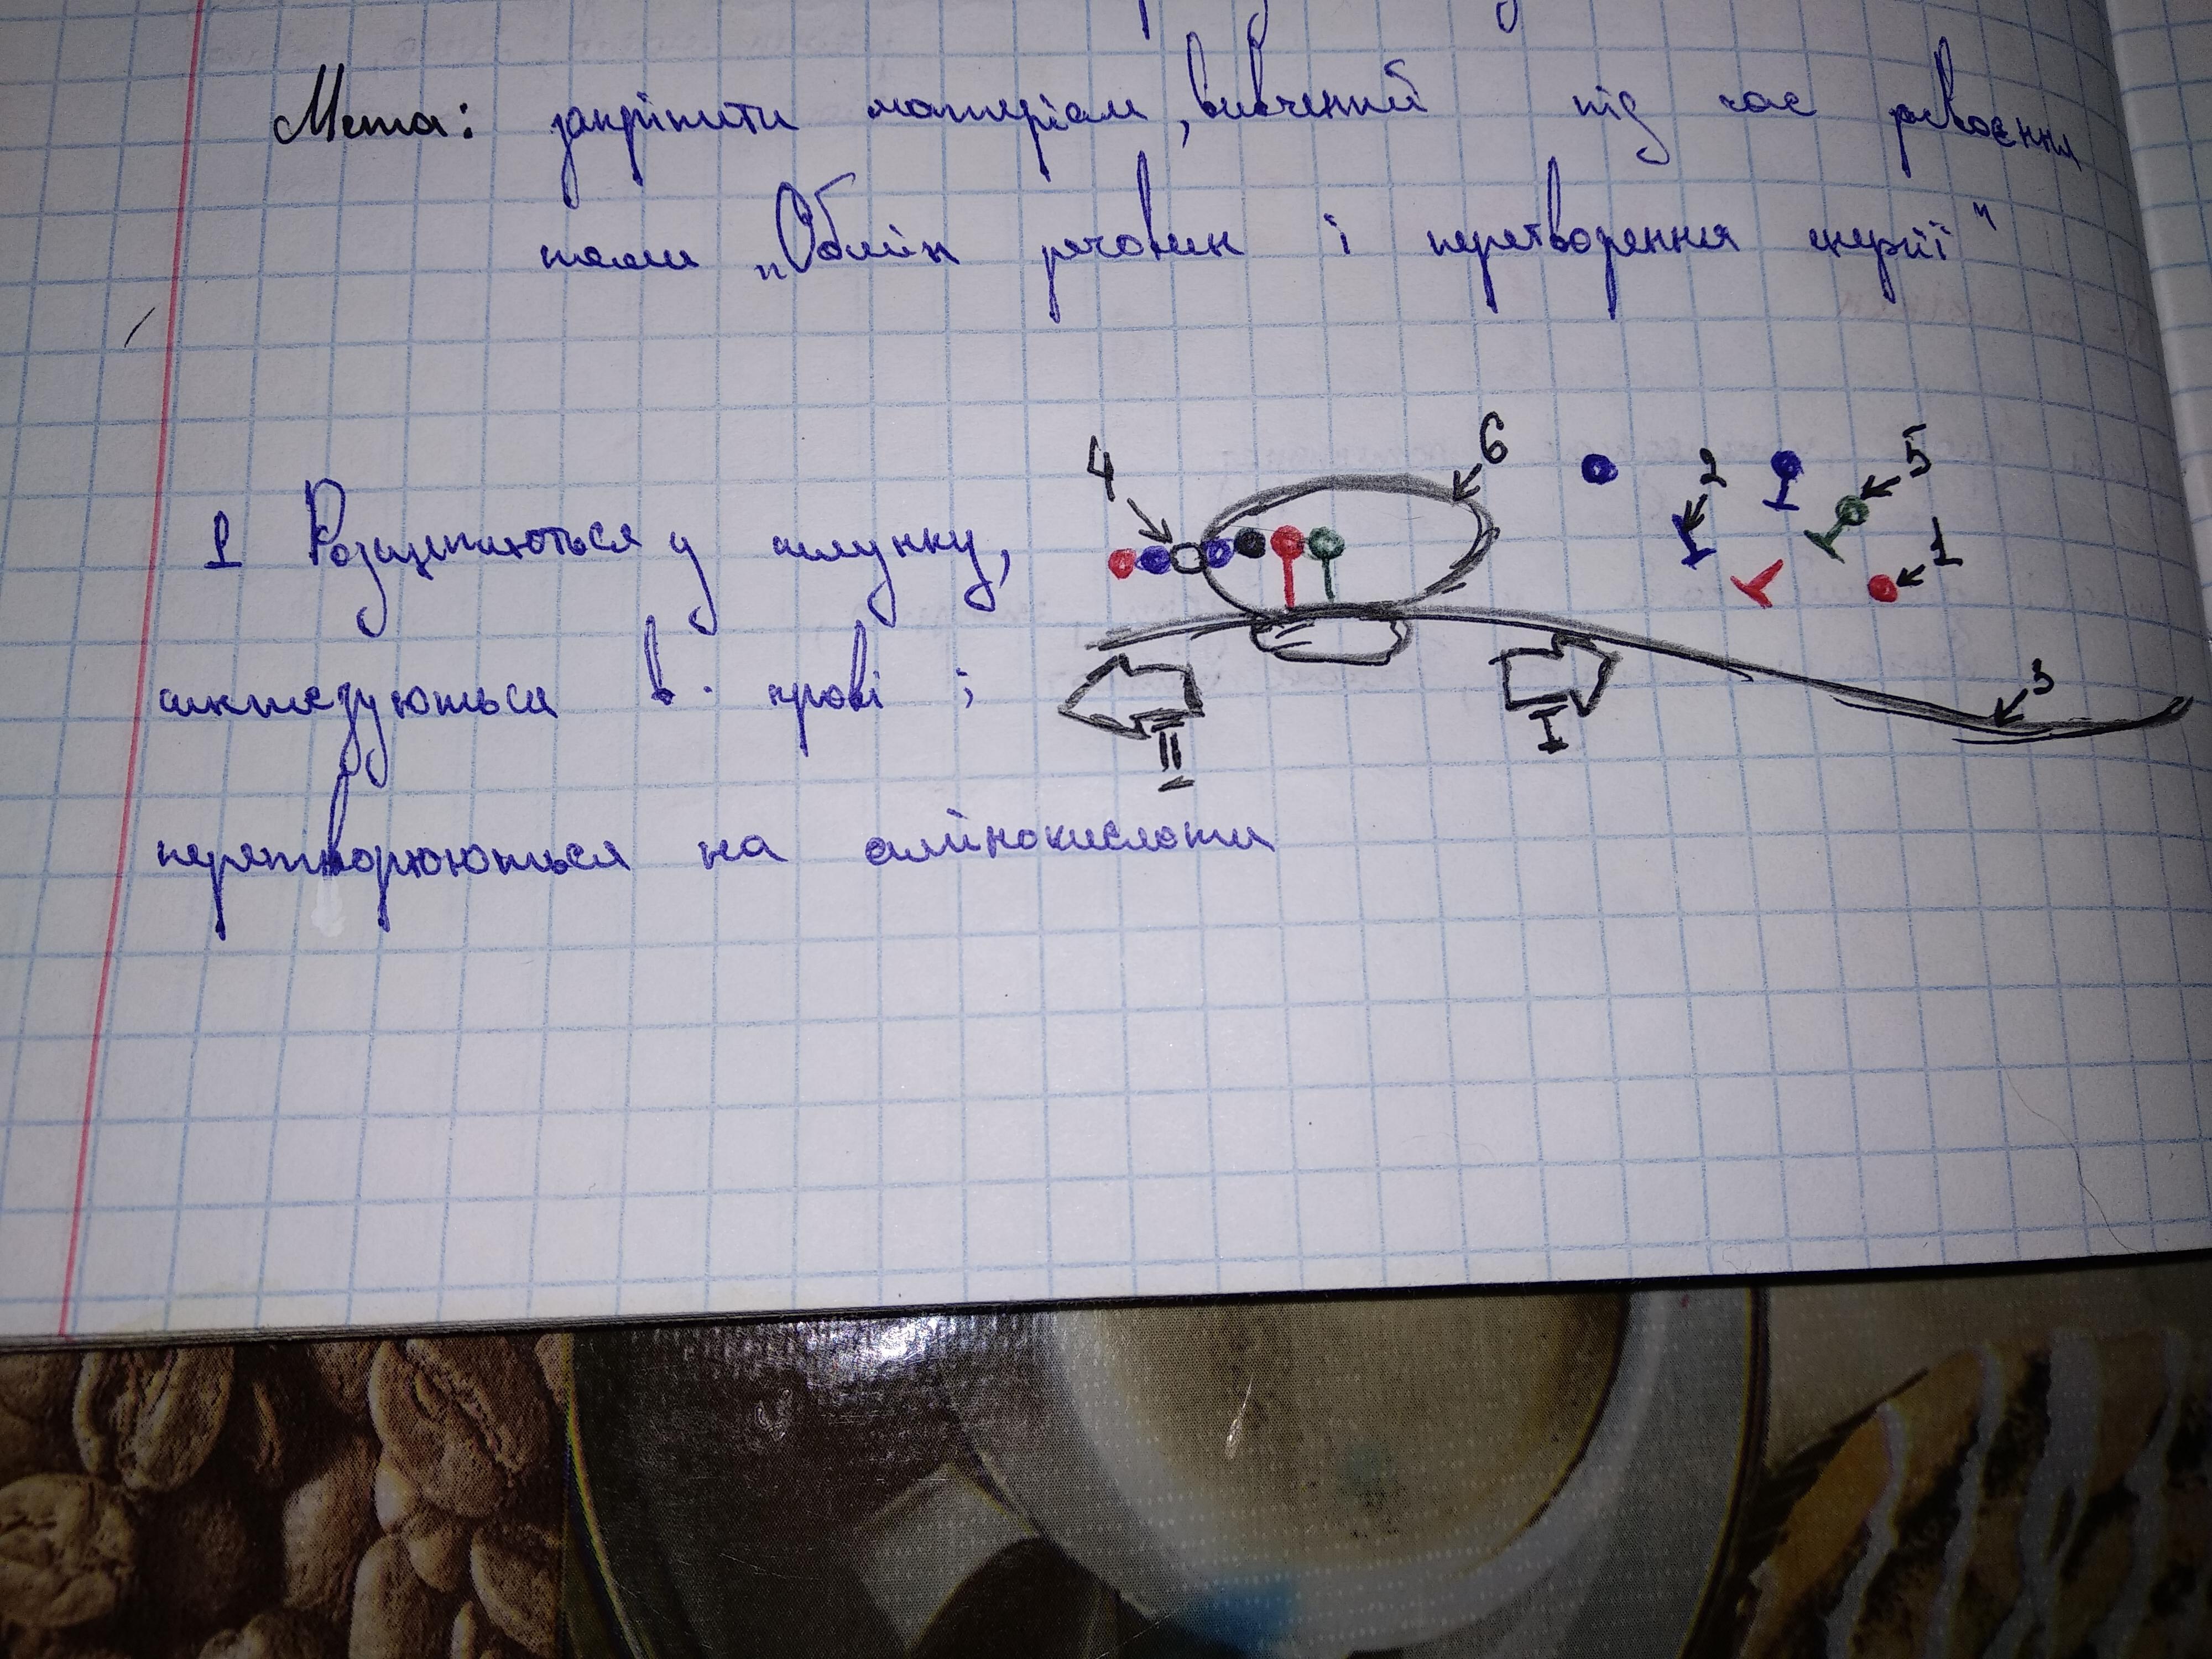 Мета: закріпити матеріал, вивчений під час
теми „Обмін речовин і перетворення енергії"
1 Розщеплюються у шлунку,
в крові ;
перетворюються на амінокислоти
4
6
2
5
1
3
II
I